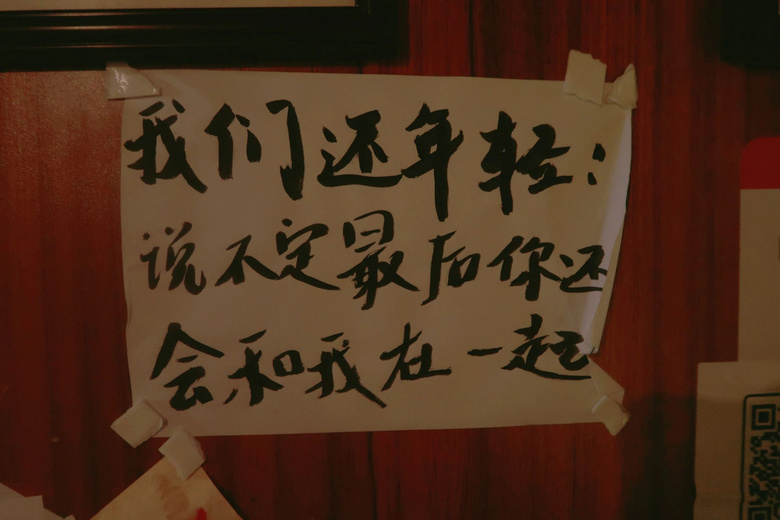 我们还年轻：
说不定最后你还
会和我在一起